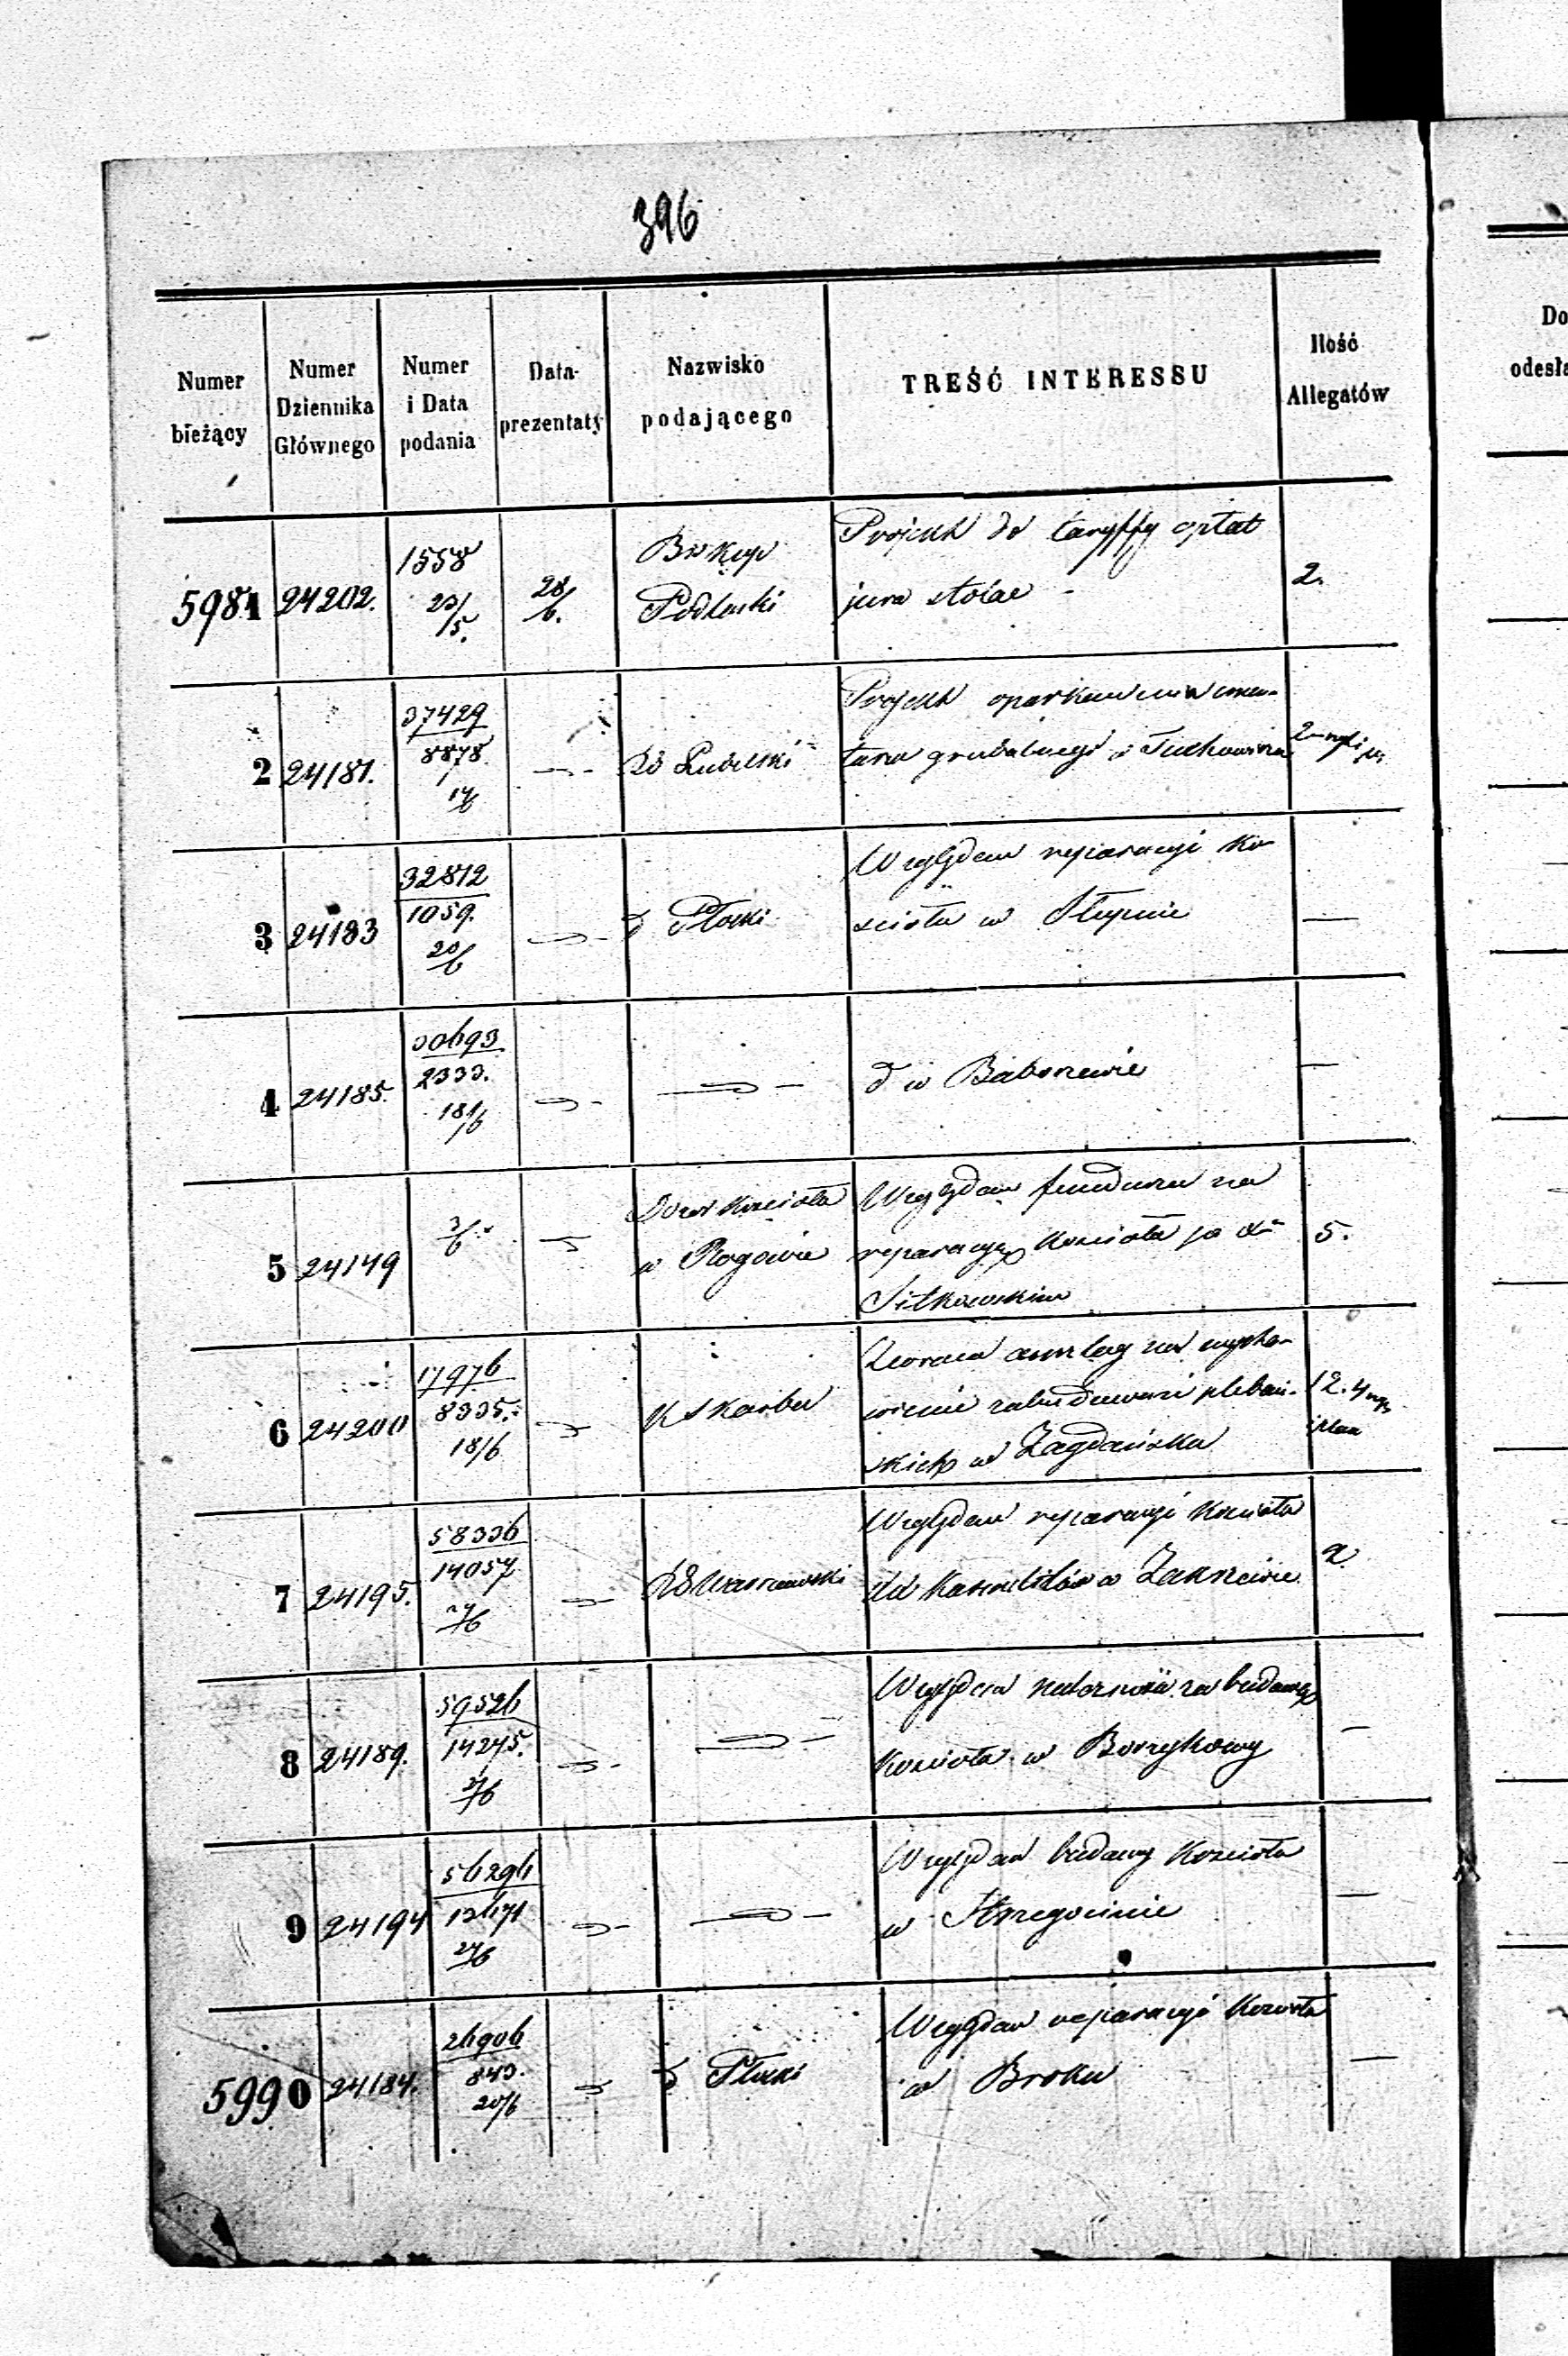 396
Numer bieżący
Numer Dziennika Głównego
Numer i Data podania
Data prezentaty
Nazwisko podającego
TREŚĆ INTERESSU
Ilość Allegatów
Do
odesła
5981 24202. 1558 23/5. 28/6. Biskup Podlaski
Projekt do taryffy opłat
jura stolae -
2.
2 24181. 37429 8878 17/6 -"- RG Lubelski
Projekt oparkanienia cmen-
tarza grzebalnego w Tuchowicza
3 24183 32812 1059. 20/6 -"- d Płocki
Względem reparacyi ko-
ścioła w Słupnie
—
4 24185. 30693 2333. 181/6 -"- -"-
d w Baboszewie
—
5 24149 3/6 -"- Dozór Kościoła
w Rogowie
Względem funduszu na
reparacyę Kościoła po
Sitkowskim
5.
6 24200 17976 8335. 18/6 -"- K Skarbu
Zwraca anszlag na wysta-
wienie zabudowań plebań-
skich w Zagdańsku
12. 4
i plan
7 24195. 58336 14057 27/6 -"- RG Warszawski
Względem reparacyi Kościoła
Karmelitów w Zakrzewie
2
8 24189. 59526 14245. 27/6 -"- -"-
Względem za budowę
Kościoła w Borzykowy
—
9 24194 56296 13671 27/6 -"- -"-
Względem budowy Kościoła
w Strzegocinie
—
5990 24184. 26906 843. 20/6 -"- d Płocki
Względem reparacyi Kościoła
w Broku
—